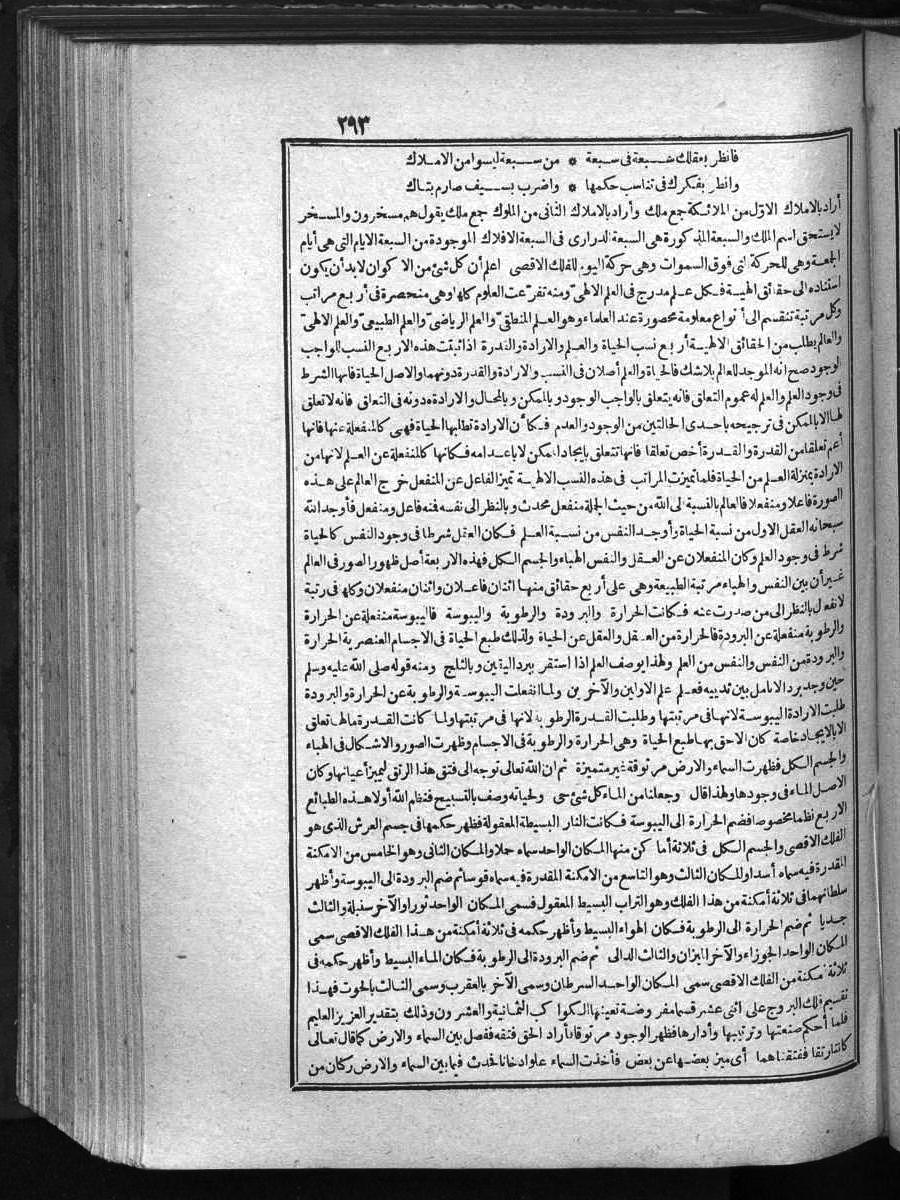 ٢٩٣
فانظر بعقلك سبعة فى سبعة * من سبعة ليسوا من الاملاك
وانظر بفكرك فى تناسب حكمها * واضرب بسيف صارم بتاك
أراد بالاملاك الاول من الملائكة جمع ملك وأراد بالاملاك الثانى من الملوك جمع ملك يقول هم مسخرون والمسخر
لا يستحق اسم الملك والسبعة المذكورة هى السبعة الدرارى فى السبعة الافلاك الموجودة من السبعة الايام التى هى أيام
الجمعة وهى للحركة التى فوق السموات وهى حركة اليوم للفلك الاقصى اعلم أن كل شئ من الاكوان لابد أن يكون
استناده الى حقائق الهية فكل علم مدرج فى العلم الالهىّ ومنه تفرّعت العلوم كلها وهى منحصرة فى أربع مراتب
وكل مرتبة تنقسم الى أنواع معلومة محصورة عند العلماء وهو العلم المنطقىّ والعلم الرياضىّ والعلم الطبيعىّ والعلم الالهىّ
والعالم يطلب من الحقائق الالهية أربع نسب الحياة والعلم والارادة والقدرة اذا ثبتت هذه الاربع النسب للواجب
الوجود صح انه الموجد للعالم بلا شك فالحياة والعلم أصلان فى النسب والارادة والقدرة دونهما والاصل الحياة فانها الشرط
فى وجود العلم والعلم له عموم التعلق فانه يتعلق بالواجب الوجود وبالممكن وبالمحال والارادة دونه فى التعلق فانه لا تعلق
لها الا بالممكن فى ترجيحه باحدى الحالتين من الوجود والعدم فكأن الارادة تطلبها الحياة فهى كالمنفعلة عنها فانها
أعم تعلقا من القدرة والقدرة أخص تعلقا فانها تتعلق بايجاد الممكن لا باعدامه فكانها كالمنفعلة عن العلم لانها من
الارادة بمنزلة العلم من الحياة فلما تميزت المراتب فى هذه النسب الالهية تميز الفاعل عن المنفعل خرج العالم على هذه
الصورة فاعلا ومنفعلا فالعالم بالنسبة الى الله من حيث الجملة منفعل محدث وبالنظر الى نفسه فنه فاعل ومنفعل فأوجد الله
سبحانه العقل الاول من نسبة الحياة وأوجد النفس من نسبة العلم فكان العقل شرطا فى وجود النفس كالحياة
شرط فى وجود العلم وكان المنفعلان عن العقل والنفس الهباء والجسم الكل فهذه الاربعة أصل ظهور الصور فى العالم
غير أن بين النفس والهباء مرتبة الطبيعة وهى على أربع حقائق منها اثنان فاعلان واثنان منفعلان وكلها فى رتبة
لانفعال بالنظر الى من صدرت عنه فكانت الحرارة والبرودة والرطوبة واليبوسة فاليبوسة منفعلة عن الحرارة
والرطوبة منفعلة عن البرودة فالحرارة من العقل والعقل عن الحياة ولذلك طبع الحياة فى الاجسام العنصرية الحرارة
والبرودة من النفس والنفس من العلم ولهذا يوصف العلم اذا استقر ببرد اليقين وبالثلج ومنه قوله صلى الله عليه وسلم
حين وجد برد الانامل بين ثدييه فعلم علم الاولين والآخرين ولما انفعلت اليبوسة والرطوبة عن الحرارة والبرودة
طلبت الارادة اليبوسة لانها فى مرتبتها وطلبت القدرة الرطوبة لانها فى مرتبتها ولما كانت القدرة مالها تعلق
الا بالايجاد خاصة كان الاحق بها طبع الحياة وهى الحرارة والرطوبة فى الاجسام وظهرت الصور والاشكال فى الهباء
والجسم الكل فظهرت السماء والارض مرتوقة غير متميزة ثم ان الله تعالى توجه الى فتق هذا الرتق ليميز أعيانها وكان
الاصل الماء فى وجودها ولهذا قال وجعلنا من الماء كل شئ حى ولحياته وصف بالتسبيح فنظم الله أولا هذه الطبائع
الاربع نظما مخصوصا فضم الحرارة الى اليبوسة فكانت النار البسيطة المعقولة فظهر حكمها فى جسم العرش الذى هو
الفلك الاقصى والجسم الكل فى ثلاثة أماكن منها المكان الواحد سماه حملا والمكان الثانى وهو الخامس من الامكنة
المقدرة فيه سماه أسدا والمكان الثالث وهو التاسع من الامكنة المقدرة فيه سماه قوسا ثم ضم البرودة الى اليبوسة وأظهر
سلطانهما فى ثلاثة أمكنة من هذا الفلك وهو التراب البسيط المعقول فسمى المكان الواحد ثورا والآخر سنبلة والثالث
جديا ثم ضم الحرارة الى الرطوبة فكان الهواء البسيط وأظهر حكمه فى ثلاثة أمكنة من هذا الفلك الاقصى سمى
المكان الواحد الجوزاء والآخر الميزان والثالث الدالى ثم ضم البرودة الى الرطوبة فكان الماء البسيط وأظهر حكمه فى
ثلاثة أمكنة من الفلك الاقصى سمى المكان الواحد السرطان وسمى الآخر بالعقرب وسمى الثالث بالحوت فهذا
تقسيم فلك البروج على اثنى عشر قسما مفروضة تعينها الكواكب الثمانية والعشرون وذلك بتقدير العزيز العليم
فلما أحكم صنعتها وترتيبها وأدارها فظهر الوجود مرتوقا فأراد الحق فتقه ففصل بين السماء والارض كما قال تعالى
كانتا رتقا ففتقناهما أى ميز بعضها عن بعض فأخذت السماء علوا دخانا فحدث فيما بين السماء والارض ركان من